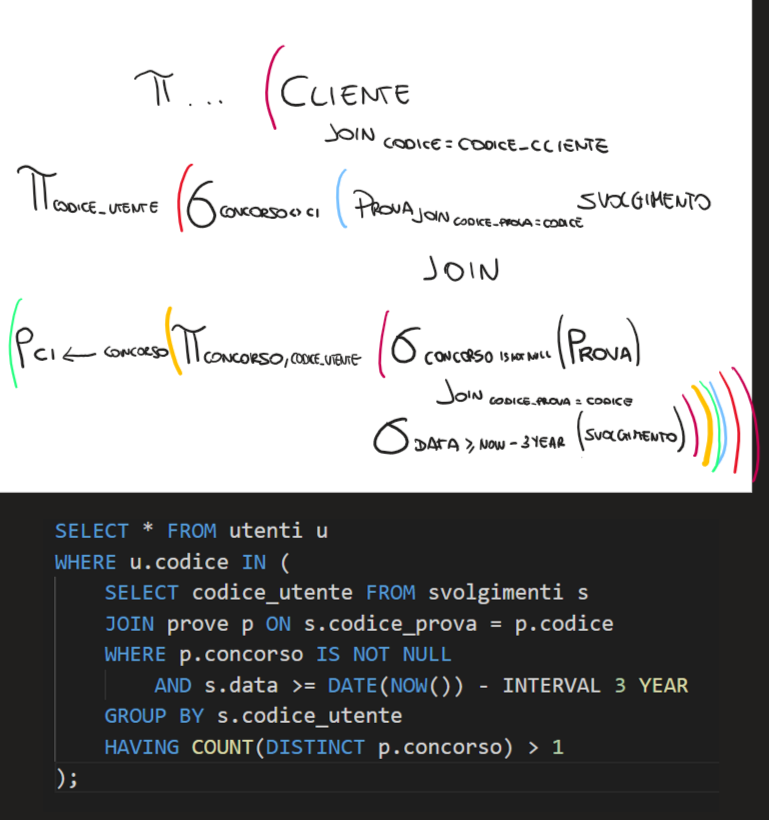 π ... (CLIENTE
JOIN CODICE = CODICE_CCIENTE
π CODICE_UTENTE (σ CONCORSO<>C1 (PROVA JOIN CODICE_PROVA = CODICE SVOLGIMENTO
JOIN
(ρ C1 ← CONCORSO (π CONCORSO, CODICE_UTENTE (σ CONCORSO IS NOT NULL (PROVA)
JOIN CODICE_PROVA = CODICE
σ DATA ≥ NOW - 3 YEAR (SVOLGIMENTO)))))))
SELECT * FROM utenti u
WHERE u.codice IN (
SELECT codice_utente FROM svolgimenti s
JOIN prove p ON s.codice_prova = p.codice
WHERE p.concorso IS NOT NULL
AND s.data >= DATE(NOW()) - INTERVAL 3 YEAR
GROUP BY s.codice_utente
HAVING COUNT(DISTINCT p.concorso) > 1
);